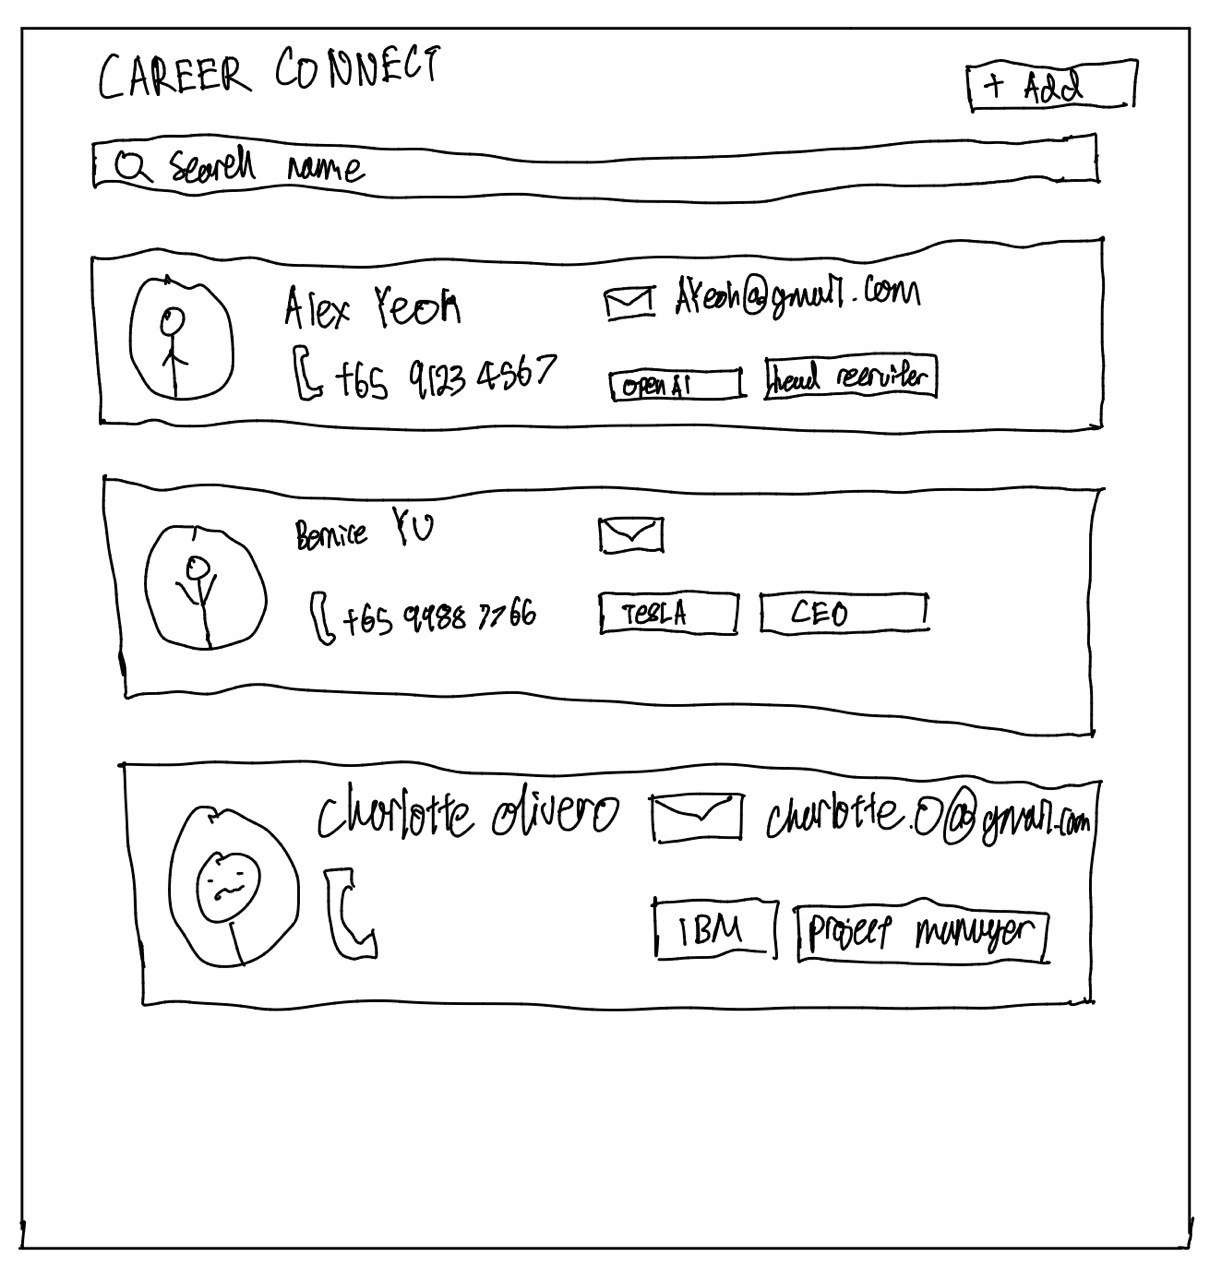 CAREER CONNECT
+ Add
Search name
Alex Yeoh
AYeoh@gmail.com
+65 9123 4567
OpenAI
head recruiter
Bernice YU
+65 9988 7766
TESLA
CEO
Charlotte Olivero
charlotte.O@gmail.com
IBM
project manager